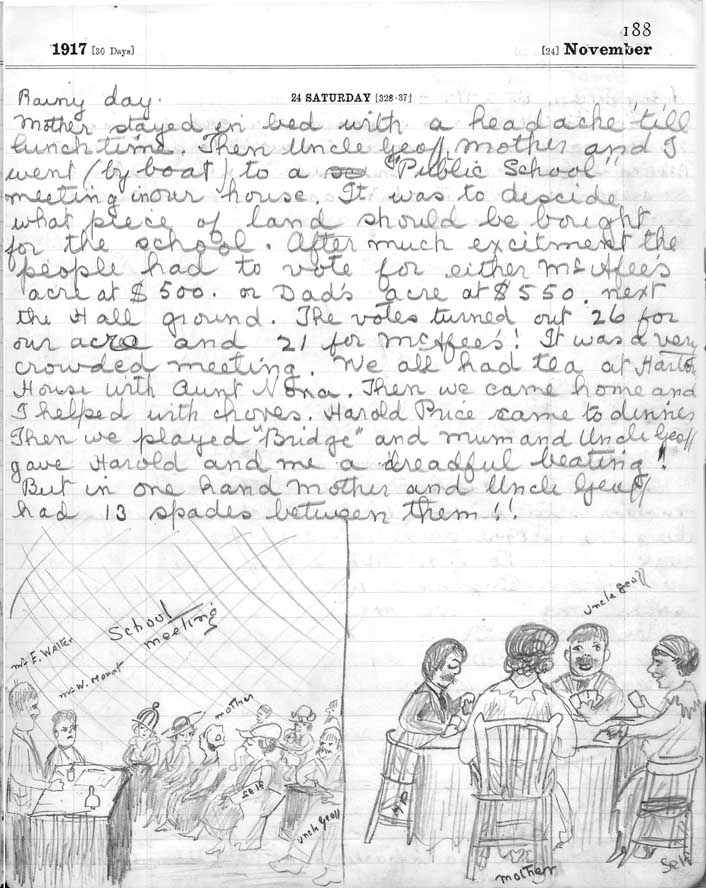 188
1917 [30 Days] [24] November
24 SATURDAY [328-37]
Rainy day.
Mother stayed in bed with a headache 'till
lunchtime. Then Uncle Geoff, mother and I
went (by boat) to a "Public School"
meeting in our house. It was to descide
what piece of land should be bought
for the school. After much excitment the
people had to vote for either McAfee's
acre at $500. or Dad's acre at $550. next
the Hall ground. The votes turned out 26 for
our acre and 21 for McAfee's! It was a very
crowded meeting. We all had tea at
House with Aunt Nona. Then we came home and
I helped with chores. Harold Price came to dinner
Then we played "Bridge" and mum and Uncle Geoff
gave Harold and me a dreadful beating!
But in one hand Mother and Uncle Geoff
had 13 spades between them!!
School
meeting
Mr E. Walter
Mr W. Mouat
mother
self
uncle Geoff
uncle Geoff
HP
mother
Self